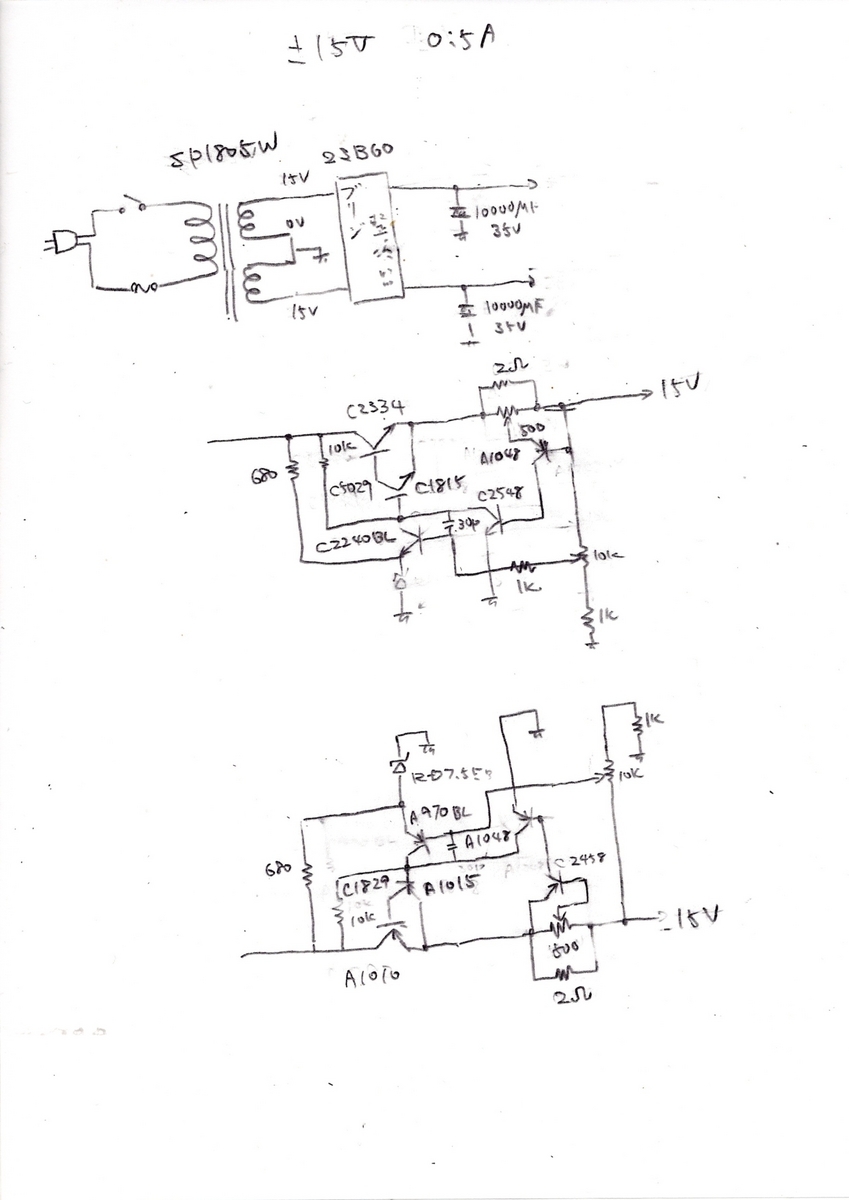 ±15V 0.5A
SP1805W 23B60
15V
0V
15V
ブリッジ
10000μF
35V
10000μF
35V
2Ω
15V
C2334
500
10K
A1048
680
C5029 C1815
C2548
30p
C2240BL
10K
1K
1K
1K
RD7.5E
10K
A970BL
A1048
680
C2458
C1829 A1015
10K
-15V
500
A1010
2Ω